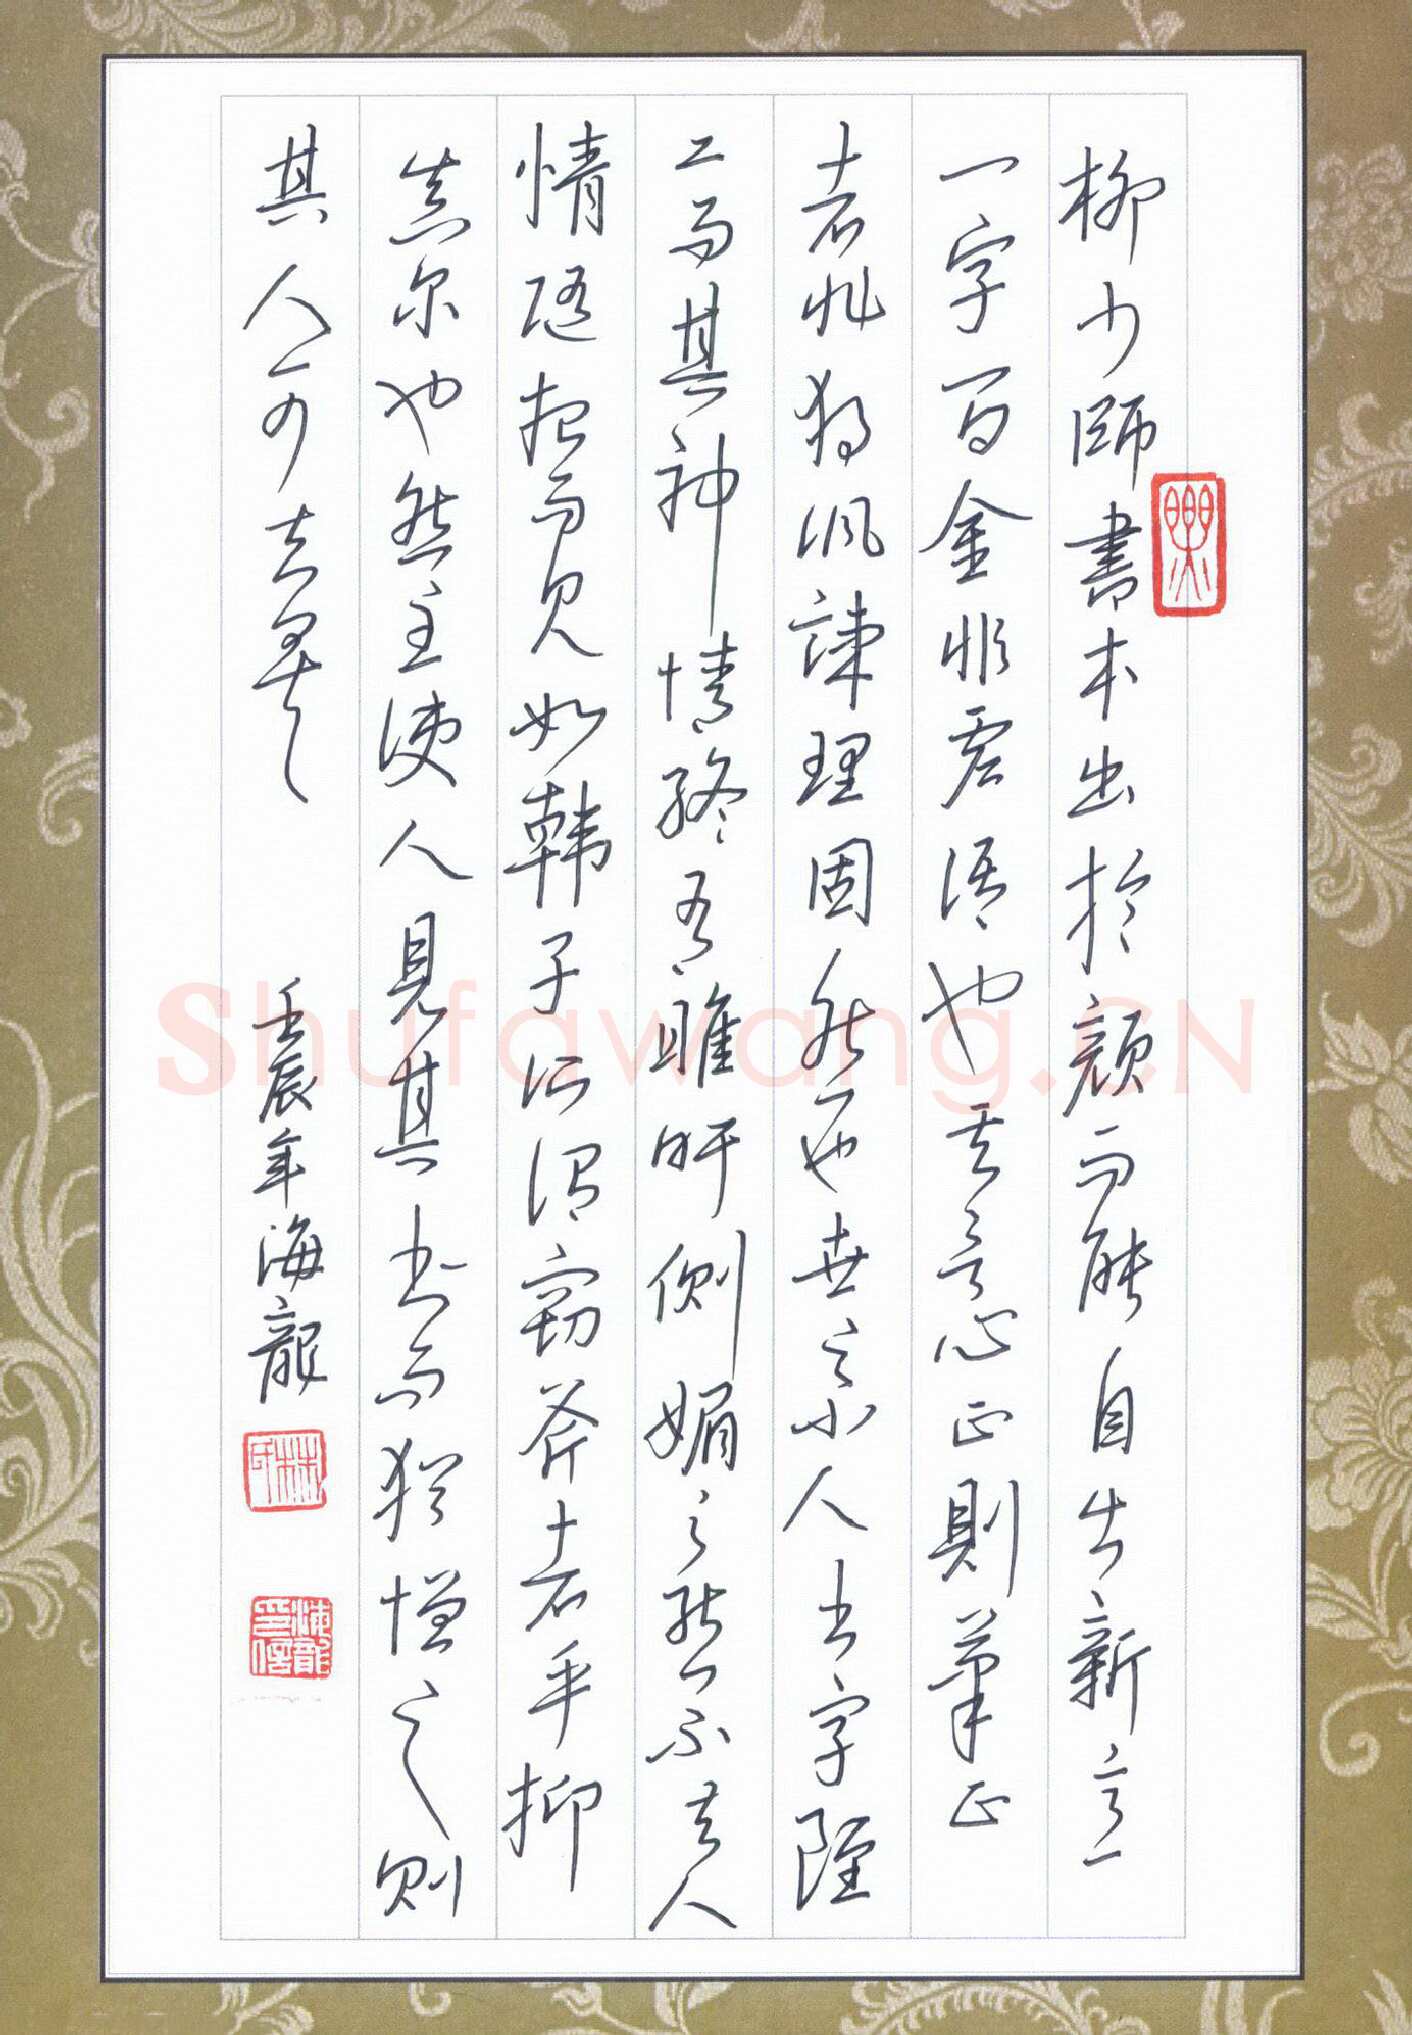 柳少師書本出於顏而能自出新意
一字百金非虛語也其言心正則筆正
者非獨諷諫理固然也世之小人书字雖
工而其神情終有睢盱側媚之態不知人
情隨想而見如韓子所謂竊斧者乎抑
真尔也然至使人見其书而猶憎之則
其人可知矣
壬辰年海龍
林氏
海龍印信
Shufawang.CN